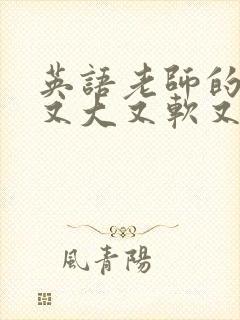 英語老師的
又大又軟又
風青陽